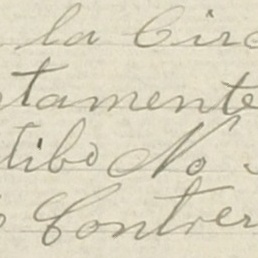 la Circ
tamente
tibo No
Contrer